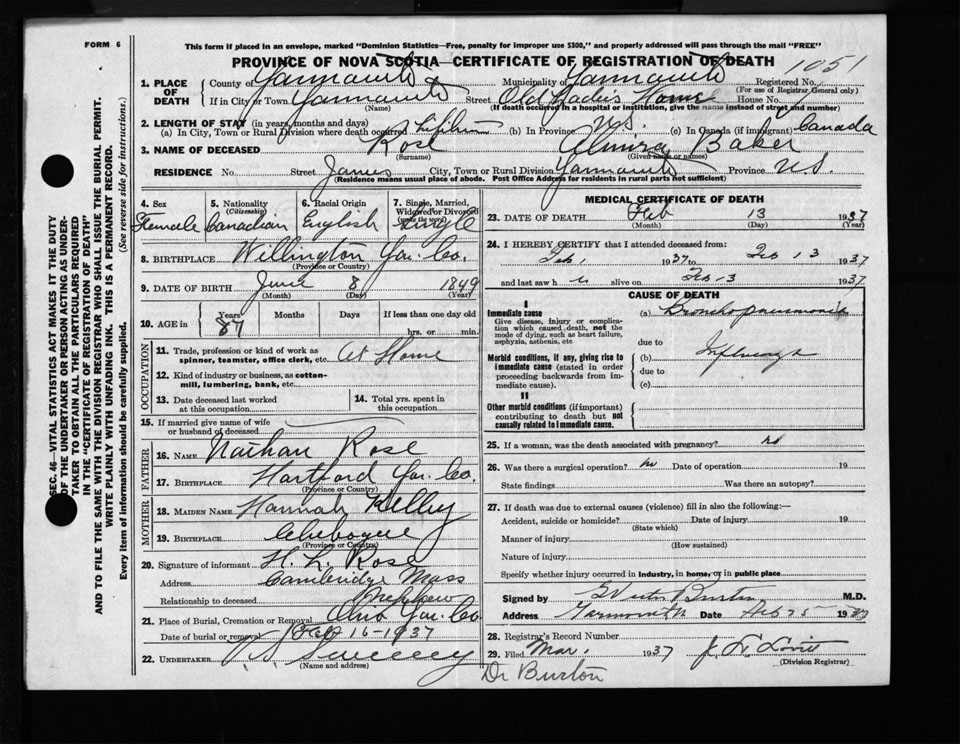 FORM 6
This form if placed in an envelope, marked "Dominion Statistics—Free, penalty for improper use $300," and properly addressed will pass through the mail "FREE"
PROVINCE OF NOVA SCOTIA—CERTIFICATE OF REGISTRATION OF DEATH
1051
1. PLACE OF DEATH County of Yarmouth Municipality of Yarmouth Registered No.
(For use of Registrar General only)
If in City or Town Yarmouth Street Old Ladies Home House No.
(If death occurred in a hospital or institution, give the name instead of street and number)
2. LENGTH OF STAY (in years, months and days)
(a) In City, Town or Rural Division where death occurred (b) In Province N.S. (c) In Canada (if immigrant) Canada
3. NAME OF DECEASED Rose Almira Baker
(Surname) (Given name or names)
RESIDENCE No. Street James City, Town or Rural Division Yarmouth Province N.S.
(Residence means usual place of abode. Post Office Address for residents in rural parts not sufficient)
4. Sex Female
5. Nationality (Citizenship) Canadian
6. Racial Origin English
7. Single, Married, Widowed or Divorced (write the word) Single
8. BIRTHPLACE Wellington Yar. Co.
(Province or Country)
9. DATE OF BIRTH June 8 1849
(Month) (Day) (Year)
10. AGE in Years 87 Months Days If less than one day old hrs. or min.
OCCUPATION
11. Trade, profession or kind of work as spinner, teamster, office clerk, etc. At Home
12. Kind of industry or business, as cotton-mill, lumbering, bank, etc.
13. Date deceased last worked at this occupation
14. Total yrs. spent in this occupation
15. If married give name of wife or husband of deceased
FATHER
16. NAME Nathan Rose
17. BIRTHPLACE Hartford Yar. Co.
(Province or Country)
MOTHER
18. MAIDEN NAME Hannah Kelley
19. BIRTHPLACE Chebogue
(Province or Country)
20. Signature of informant H. L. Rose
Address Cambridge Mass
Relationship to deceased Nephew
21. Place of Burial, Cremation or Removal Ohio Yar. Co.
Date of burial or removal Feb 16-1937
22. UNDERTAKER V. S. Sweeney
(Name and address)
MEDICAL CERTIFICATE OF DEATH
23. DATE OF DEATH Feb 13 1937
(Month) (Day) (Year)
24. I HEREBY CERTIFY that I attended deceased from:
Feb, 1 1937 to Feb 13 1937
and last saw h er alive on Feb 13 1937
CAUSE OF DEATH
I
Immediate cause
Give disease, injury or complication which caused death, not the mode of dying, such as heart failure, asphyxia, asthenia, etc.
(a) Broncho pneumonia
due to
Morbid conditions, if any, giving rise to immediate cause (stated in order proceeding backwards from immediate cause).
(b) Influenza
due to
(c)
II
Other morbid conditions (if important) contributing to death but not causally related to immediate cause.
25. If a woman, was the death associated with pregnancy? no
26. Was there a surgical operation? no Date of operation 19
State findings Was there an autopsy?
27. If death was due to external causes (violence) fill in also the following:—
Accident, suicide or homicide? Date of injury 19
(State which)
Manner of injury
(How sustained)
Nature of injury
Specify whether injury occurred in industry, in home, or in public place
Signed by Burton M.D.
Address Yarmouth Date Feb 25 1937
28. Registrar's Record Number
29. Filed Mar, 1 1937 J. L. Lovitt
(Division Registrar)
Dr Burton
SEC. 46—VITAL STATISTICS ACT MAKES IT THE DUTY
OF THE UNDERTAKER OR PERSON ACTING AS UNDER-
TAKER TO OBTAIN ALL THE PARTICULARS REQUIRED
IN THE "CERTIFICATE OF REGISTRATION OF DEATH"
AND TO FILE THE SAME WITH THE DIVISION REGISTRAR WHO SHALL ISSUE THE BURIAL PERMIT.
WRITE PLAINLY WITH UNFADING INK. THIS IS A PERMANENT RECORD.
Every item of information should be carefully supplied. (See reverse side for instructions.)